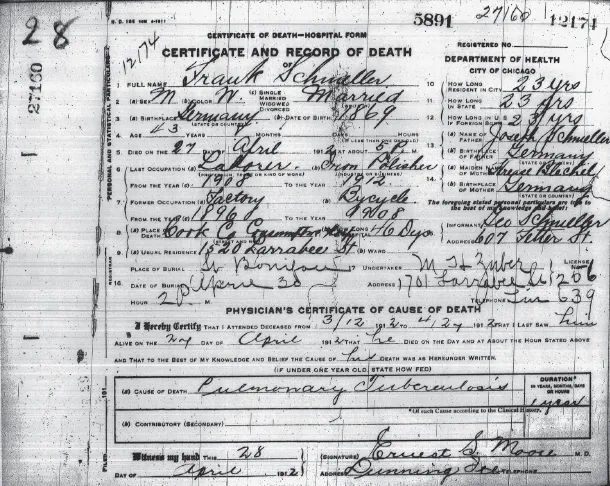 28
27160
5891 27160 12174
12174
CERTIFICATE OF DEATH—HOSPITAL FORM
REGISTERED NO.
CERTIFICATE AND RECORD OF DEATH
OF
DEPARTMENT OF HEALTH
CITY OF CHICAGO
PERSONAL AND STATISTICAL PARTICULARS
1 FULL NAME Frank Schmeller
2 (a) SEX M (b) COLOR W. (c) SINGLE MARRIED WIDOWED DIVORCED Married
3 (a) BIRTHPLACE Germany (STATE OR COUNTRY) (b) DATE OF BIRTH 1869
4 AGE 43 YEARS MONTHS DAYS HOURS
(IF LESS THAN ONE DAY OLD)
5 DIED ON THE 27 DAY OF April 1912 AT ABOUT 5
6 LAST OCCUPATION Laborer.
FROM THE YEAR (c) 1908 TO THE YEAR 1912
7 FORMER OCCUPATION Factory Bycycle
FROM THE YEAR (c) 1896 TO THE YEAR 1908
8 (a) PLACE OF DEATH Cook C 46 Dys
9 (a) USUAL RESIDENCE 1520 Larrabee St (b) WARD
10 HOW LONG RESIDENT IN CITY 23 yrs
11 HOW LONG IN STATE 23 yrs
12 HOW LONG IN U.S. IF FOREIGN BORN 23 yrs
13 (a) NAME OF FATHER Joseph Schmeller
(b) BIRTHPLACE OF FATHER Germany
(STATE OR COUNTRY)
14 (a) MAIDEN NAME OF MOTHER
(b) BIRTHPLACE OF MOTHER Germany
(STATE OR COUNTRY)
The foregoing stated personal particulars are true to the best of my knowledge and belief.
INFORMANT Geo Schmeller
ADDRESS 607 St.
PLACE OF BURIAL St Bonifac
17 UNDERTAKER M H Zuber LICENSE No. 206
16 DATE OF BURIAL April 30
ADDRESS 1701 Larrabee St
HOUR 2 P M. TELEPHONE 639
PHYSICIAN'S CERTIFICATE OF CAUSE OF DEATH
I Hereby Certify THAT I ATTENDED DECEASED FROM 3/12 1912 TO 4/27 1912 THAT I LAST SAW him
ALIVE ON THE 27 DAY OF April 1912 THAT he DIED ON THE DAY AND AT ABOUT THE HOUR STATED ABOVE
AND THAT TO THE BEST OF MY KNOWLEDGE AND BELIEF THE CAUSE OF his DEATH WAS AS HEREUNDER WRITTEN.
(IF UNDER ONE YEAR OLD, STATE HOW FED)
(a) CAUSE OF DEATH Pulmonary Tuberculosis
DURATION*
IN YEARS, MONTHS, DAYS OR HOURS
1 year
*Of each Cause according to the Clinical History.
(b) CONTRIBUTORY (SECONDARY)
191
FILED
Witness my hand THIS 28
DAY OF April 1912
(SIGNATURE) Ernest S. Moore M. D.
ADDRESS Dunning Ill TELEPHONE